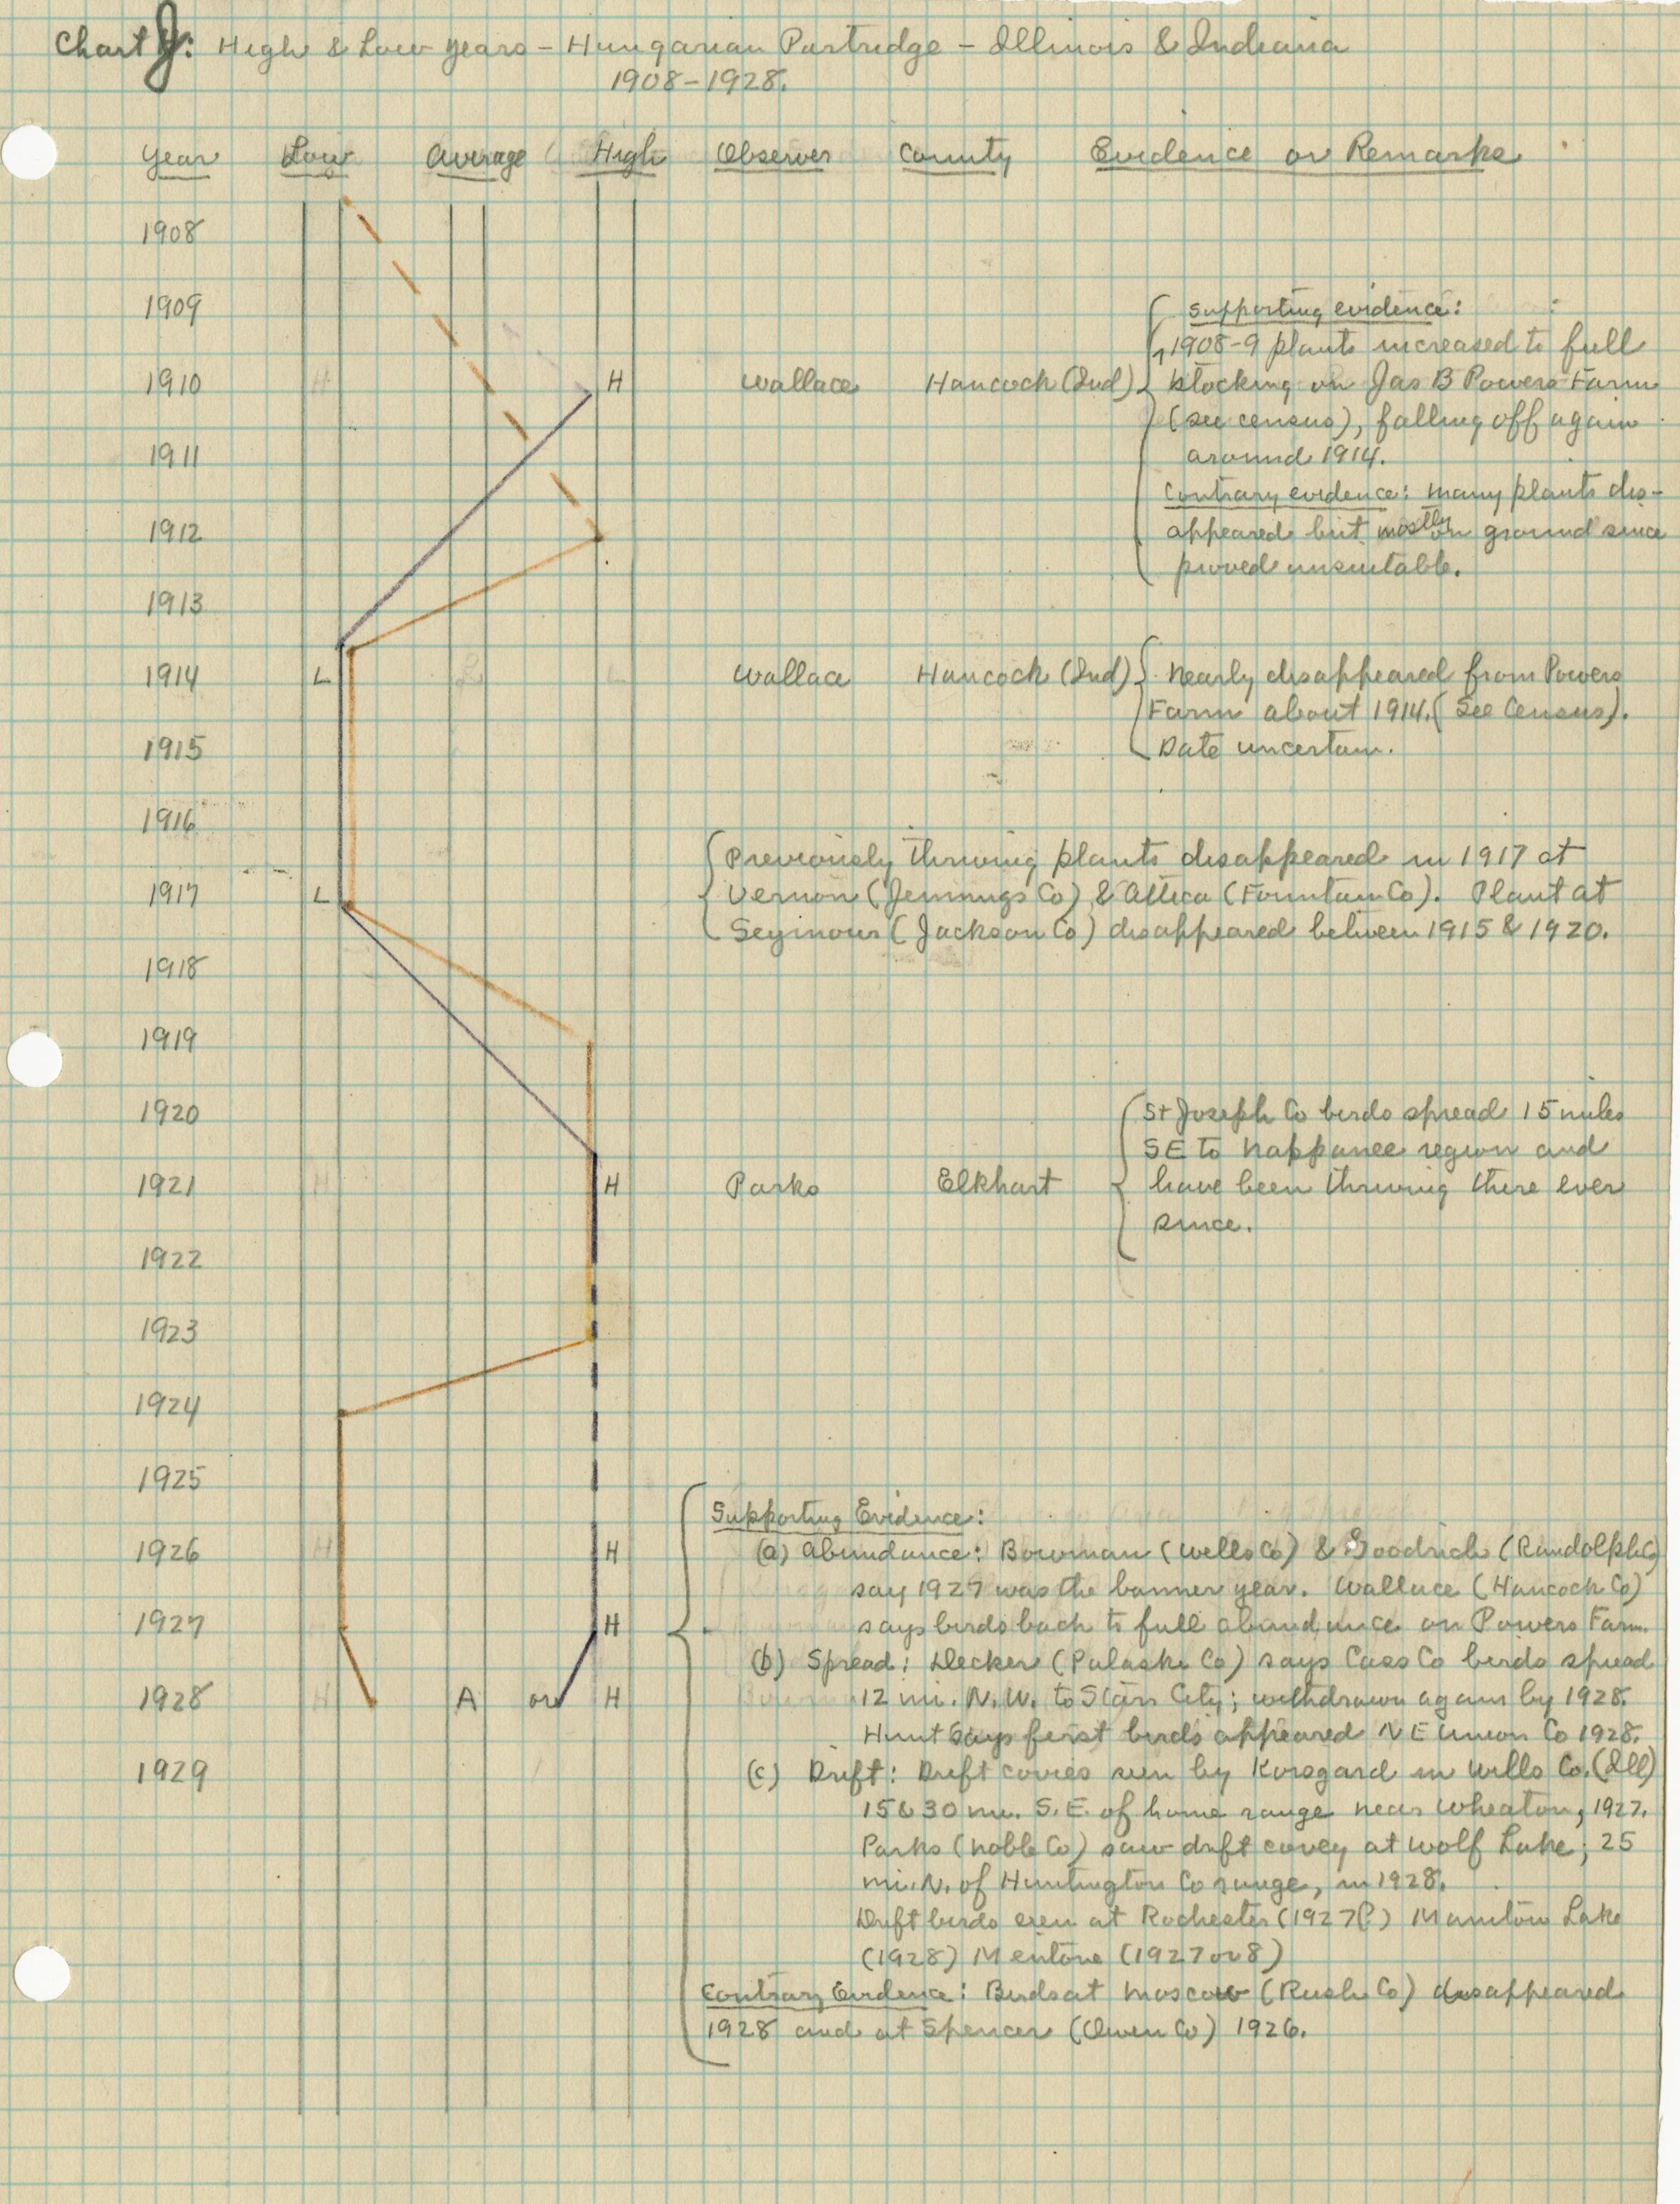 Chart J: High & Low years – Hungarian Partridge – Illinois & Indiana
1908–1928.
Year Low Average High Observer County Evidence or Remarks
1908
1909
Supporting evidence:
1908-9 plants increased to full
1910 H Wallace Hancock (Ind) stocking on Jas B Powers Farm
(see census), falling off again
1911
around 1914.
Contrary evidence: many plants dis-
1912
appeared but mostly on ground since
proved unsuitable.
1913
1914 L Wallace Hancock (Ind) Nearly disappeared from Powers
Farm about 1914. (See Census).
1915
Date uncertain.
1916
Previously thriving plants disappeared in 1917 at
1917 L Vernon (Jennings Co) & Attica (Fountain Co). Plant at
Seymour (Jackson Co) disappeared between 1915 & 1920.
1918
1919
1920 St Joseph Co birds spread 15 miles
SE to Nappanee region and
1921 H Parks Elkhart have been thriving there ever
since.
1922
1923
1924
1925
Supporting Evidence:
1926 H (a) Abundance: Bowman (Wells Co) & Goodrich (Randolph Co)
say 1927 was the banner year. Wallace (Hancock Co)
1927 H says birds back to full abundance on Powers Farm.
(b) Spread: Decker (Pulaski Co) says Cass Co birds spread
1928 A or H 12 mi. N.W. to Star City; withdrawn again by 1928.
Hunt says first birds appeared NE Union Co 1928.
1929 (c) Drift: Drift covies seen by Korsgard in Wills Co. (Ill)
15 & 30 mi. S.E. of home range near Wheaton, 1927.
Parks (Noble Co) saw drift covey at Wolf Lake, 25
mi. N. of Huntington Co range, in 1928.
Drift birds seen at Rochester (1927?) Manitou Lake
(1928) Mentone (1927 or 8)
Contrary Evidence: Birds at Moscow (Rush Co) disappeared
1928 and at Spencer (Owen Co) 1926.